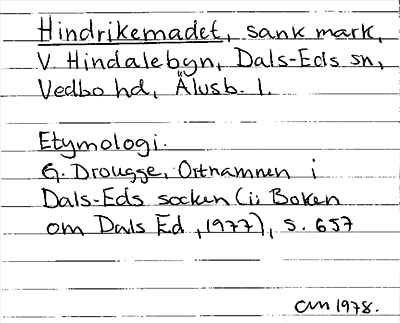 Hindrikemadet, sank mark,
V Hindalebyn, Dals-Eds sn,
Vedbo hd, Älvsb. l.
Etymologi.
G. Drougge, Ortnamnen i
Dals-Eds socken (i: Boken
om Dals Ed, 1977), s. 657
CM 1978.